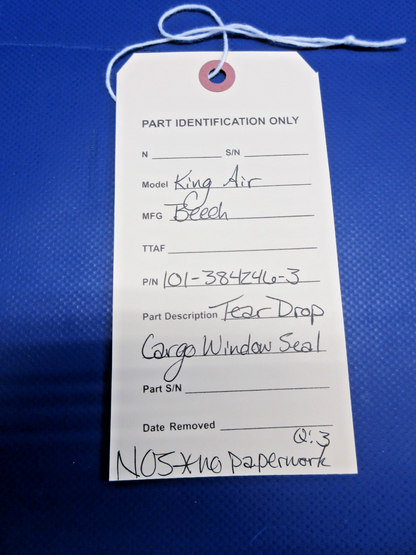 PART IDENTIFICATION ONLY
N ____________ S/N ____________
Model King Air
MFG Beech
TTAF ____________
P/N 101-384246-3
Part Description Tear Drop
Cargo Window Seal
Part S/N ____________
Date Removed ____________
Q: 3
NOS * no paperwork